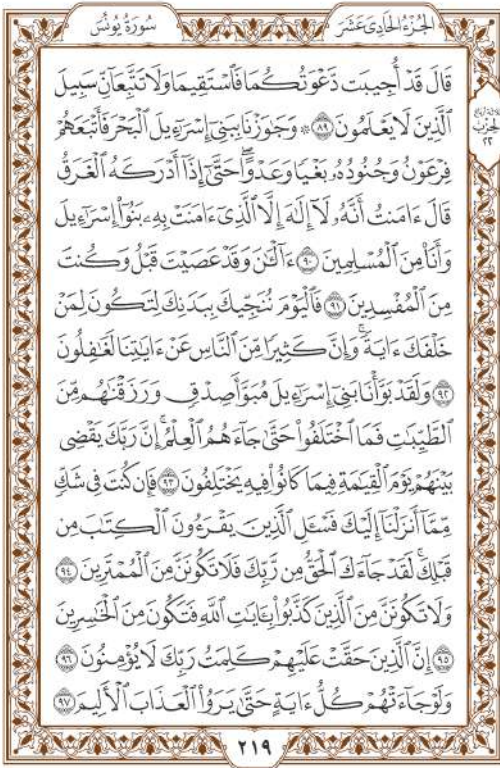 الجزء الحادي عشر
سورة يونس
قَالَ قَدْ أُجِيبَت دَّعْوَتُكُمَا فَاسْتَقِيمَا وَلَا تَتَّبِعَآنِّ سَبِيلَ
ٱلَّذِينَ لَا يَعْلَمُونَ ٨٩ ۞ وَجَٰوَزْنَا بِبَنِىٓ إِسْرَٰٓءِيلَ ٱلْبَحْرَ فَأَتْبَعَهُمْ
فِرْعَوْنُ وَجُنُودُهُۥ بَغْيًا وَعَدْوًا ۖ حَتَّىٰٓ إِذَآ أَدْرَكَهُ ٱلْغَرَقُ
قَالَ ءَامَنتُ أَنَّهُۥ لَآ إِلَٰهَ إِلَّا ٱلَّذِىٓ ءَامَنَتْ بِهِۦ بَنُوٓا۟ إِسْرَٰٓءِيلَ
وَأَنَا۠ مِنَ ٱلْمُسْلِمِينَ ٩٠ ءَآلْـَٰٔنَ وَقَدْ عَصَيْتَ قَبْلُ وَكُنتَ
مِنَ ٱلْمُفْسِدِينَ ٩١ فَٱلْيَوْمَ نُنَجِّيكَ بِبَدَنِكَ لِتَكُونَ لِمَنْ
خَلْفَكَ ءَايَةً ۚ وَإِنَّ كَثِيرًا مِّنَ ٱلنَّاسِ عَنْ ءَايَٰتِنَا لَغَٰفِلُونَ
٩٢ وَلَقَدْ بَوَّأْنَا بَنِىٓ إِسْرَٰٓءِيلَ مُبَوَّأَ صِدْقٍ وَرَزَقْنَٰهُم مِّنَ
ٱلطَّيِّبَٰتِ فَمَا ٱخْتَلَفُوا۟ حَتَّىٰ جَآءَهُمُ ٱلْعِلْمُ ۚ إِنَّ رَبَّكَ يَقْضِى
بَيْنَهُمْ يَوْمَ ٱلْقِيَٰمَةِ فِيمَا كَانُوا۟ فِيهِ يَخْتَلِفُونَ ٩٣ فَإِن كُنتَ فِى شَكٍّ
مِّمَّآ أَنزَلْنَآ إِلَيْكَ فَسْـَٔلِ ٱلَّذِينَ يَقْرَءُونَ ٱلْكِتَٰبَ مِن
قَبْلِكَ ۚ لَقَدْ جَآءَكَ ٱلْحَقُّ مِن رَّبِّكَ فَلَا تَكُونَنَّ مِنَ ٱلْمُمْتَرِينَ ٩٤
وَلَا تَكُونَنَّ مِنَ ٱلَّذِينَ كَذَّبُوا۟ بِـَٔايَٰتِ ٱللَّهِ فَتَكُونَ مِنَ ٱلْخَٰسِرِينَ
٩٥ إِنَّ ٱلَّذِينَ حَقَّتْ عَلَيْهِمْ كَلِمَتُ رَبِّكَ لَا يُؤْمِنُونَ ٩٦
وَلَوْ جَآءَتْهُمْ كُلُّ ءَايَةٍ حَتَّىٰ يَرَوُا۟ ٱلْعَذَابَ ٱلْأَلِيمَ ٩٧
الحزب
٢٢
٢١٩